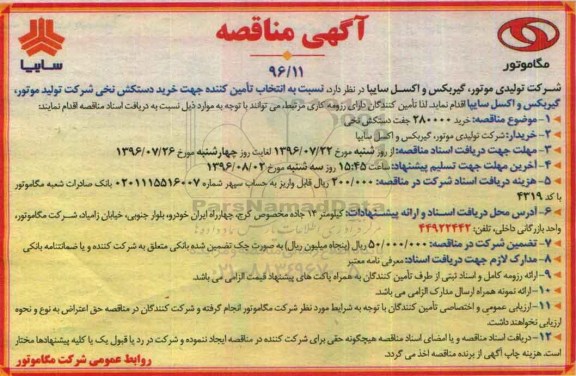 آگهی مناقصه
۹۶/۱۱
سایپا
مگاموتور
شرکت تولیدی موتور، گیربکس و اکسل سایپا در نظر دارد، نسبت به انتخاب تأمین کننده جهت خرید دستکش نخی شرکت تولید موتور،
گیربکس و اکسل سایپا اقدام نماید. لذا تأمین کنندگان دارای رزومه کاری مرتبط، می توانند با توجه به موارد ذیل نسبت به دریافت اسناد مناقصه اقدام نمایند:
۱- موضوع مناقصه: خرید ۲۸۰۰۰۰ جفت دستکش نخی
۲- خریدار: شرکت تولیدی موتور، گیربکس و اکسل سایپا
۳- مهلت جهت دریافت اسناد مناقصه: از روز شنبه مورخ ۱۳۹۶/۰۷/۲۲ لغایت روز چهارشنبه مورخ ۱۳۹۶/۰۷/۲۶
۴- آخرین مهلت جهت تسلیم پیشنهاد: ساعت ۱۵:۴۵ روز سه شنبه مورخ ۱۳۹۶/۰۸/۰۲
۵- هزینه دریافت اسناد شرکت در مناقصه: ۲۰۰/۰۰۰ ریال قابل واریز به حساب سپهر شماره ۰۲۰۱۱۱۵۵۱۶۰۰۷ بانک صادرات شعبه مگاموتور
با کد ۴۳۱۹
۶- آدرس محل دریافت اسناد و ارائه پیشنهادات: کیلومتر ۱۲ جاده مخصوص کرج، چهارراه ایران خودرو، بلوار جنوبی، خیابان زامیاد، شرکت مگاموتور،
واحد بازرگانی داخلی، تلفن: ۴۴۹۲۲۴۴۲
۷- تضمین شرکت در مناقصه: ۵۰/۰۰۰/۰۰۰ ریال (پنجاه میلیون ریال) به صورت چک تضمین شده بانکی متعلق به شرکت کننده و یا ضمانتنامه بانکی
۸- مدارک لازم جهت دریافت اسناد: معرفی نامه معتبر
۹- ارائه رزومه کامل و اسناد ثبتی از طرف تأمین کنندگان به همراه پاکت های پیشنهاد قیمت الزامی می باشد.
۱۰- ارائه نمونه همراه ارسال مدارک الزامی می باشد.
۱۱- ارزیابی عمومی و اختصاصی تأمین کنندگان با توجه به شرایط مورد نظر شرکت مگاموتور انجام گرفته و شرکت کنندگان در مناقصه حق اعتراض به نوع و نحوه
ارزیابی نخواهند داشت.
۱۲- دریافت اسناد مناقصه و یا امضای اسناد مناقصه هیچگونه حقی برای شرکت کننده در مناقصه ایجاد ننموده و شرکت در رد یا قبول یک یا کلیه پیشنهادها مختار
است. هزینه چاپ آگهی از برنده مناقصه اخذ می گردد.
روابط عمومی شرکت مگاموتور
ParsNamadData